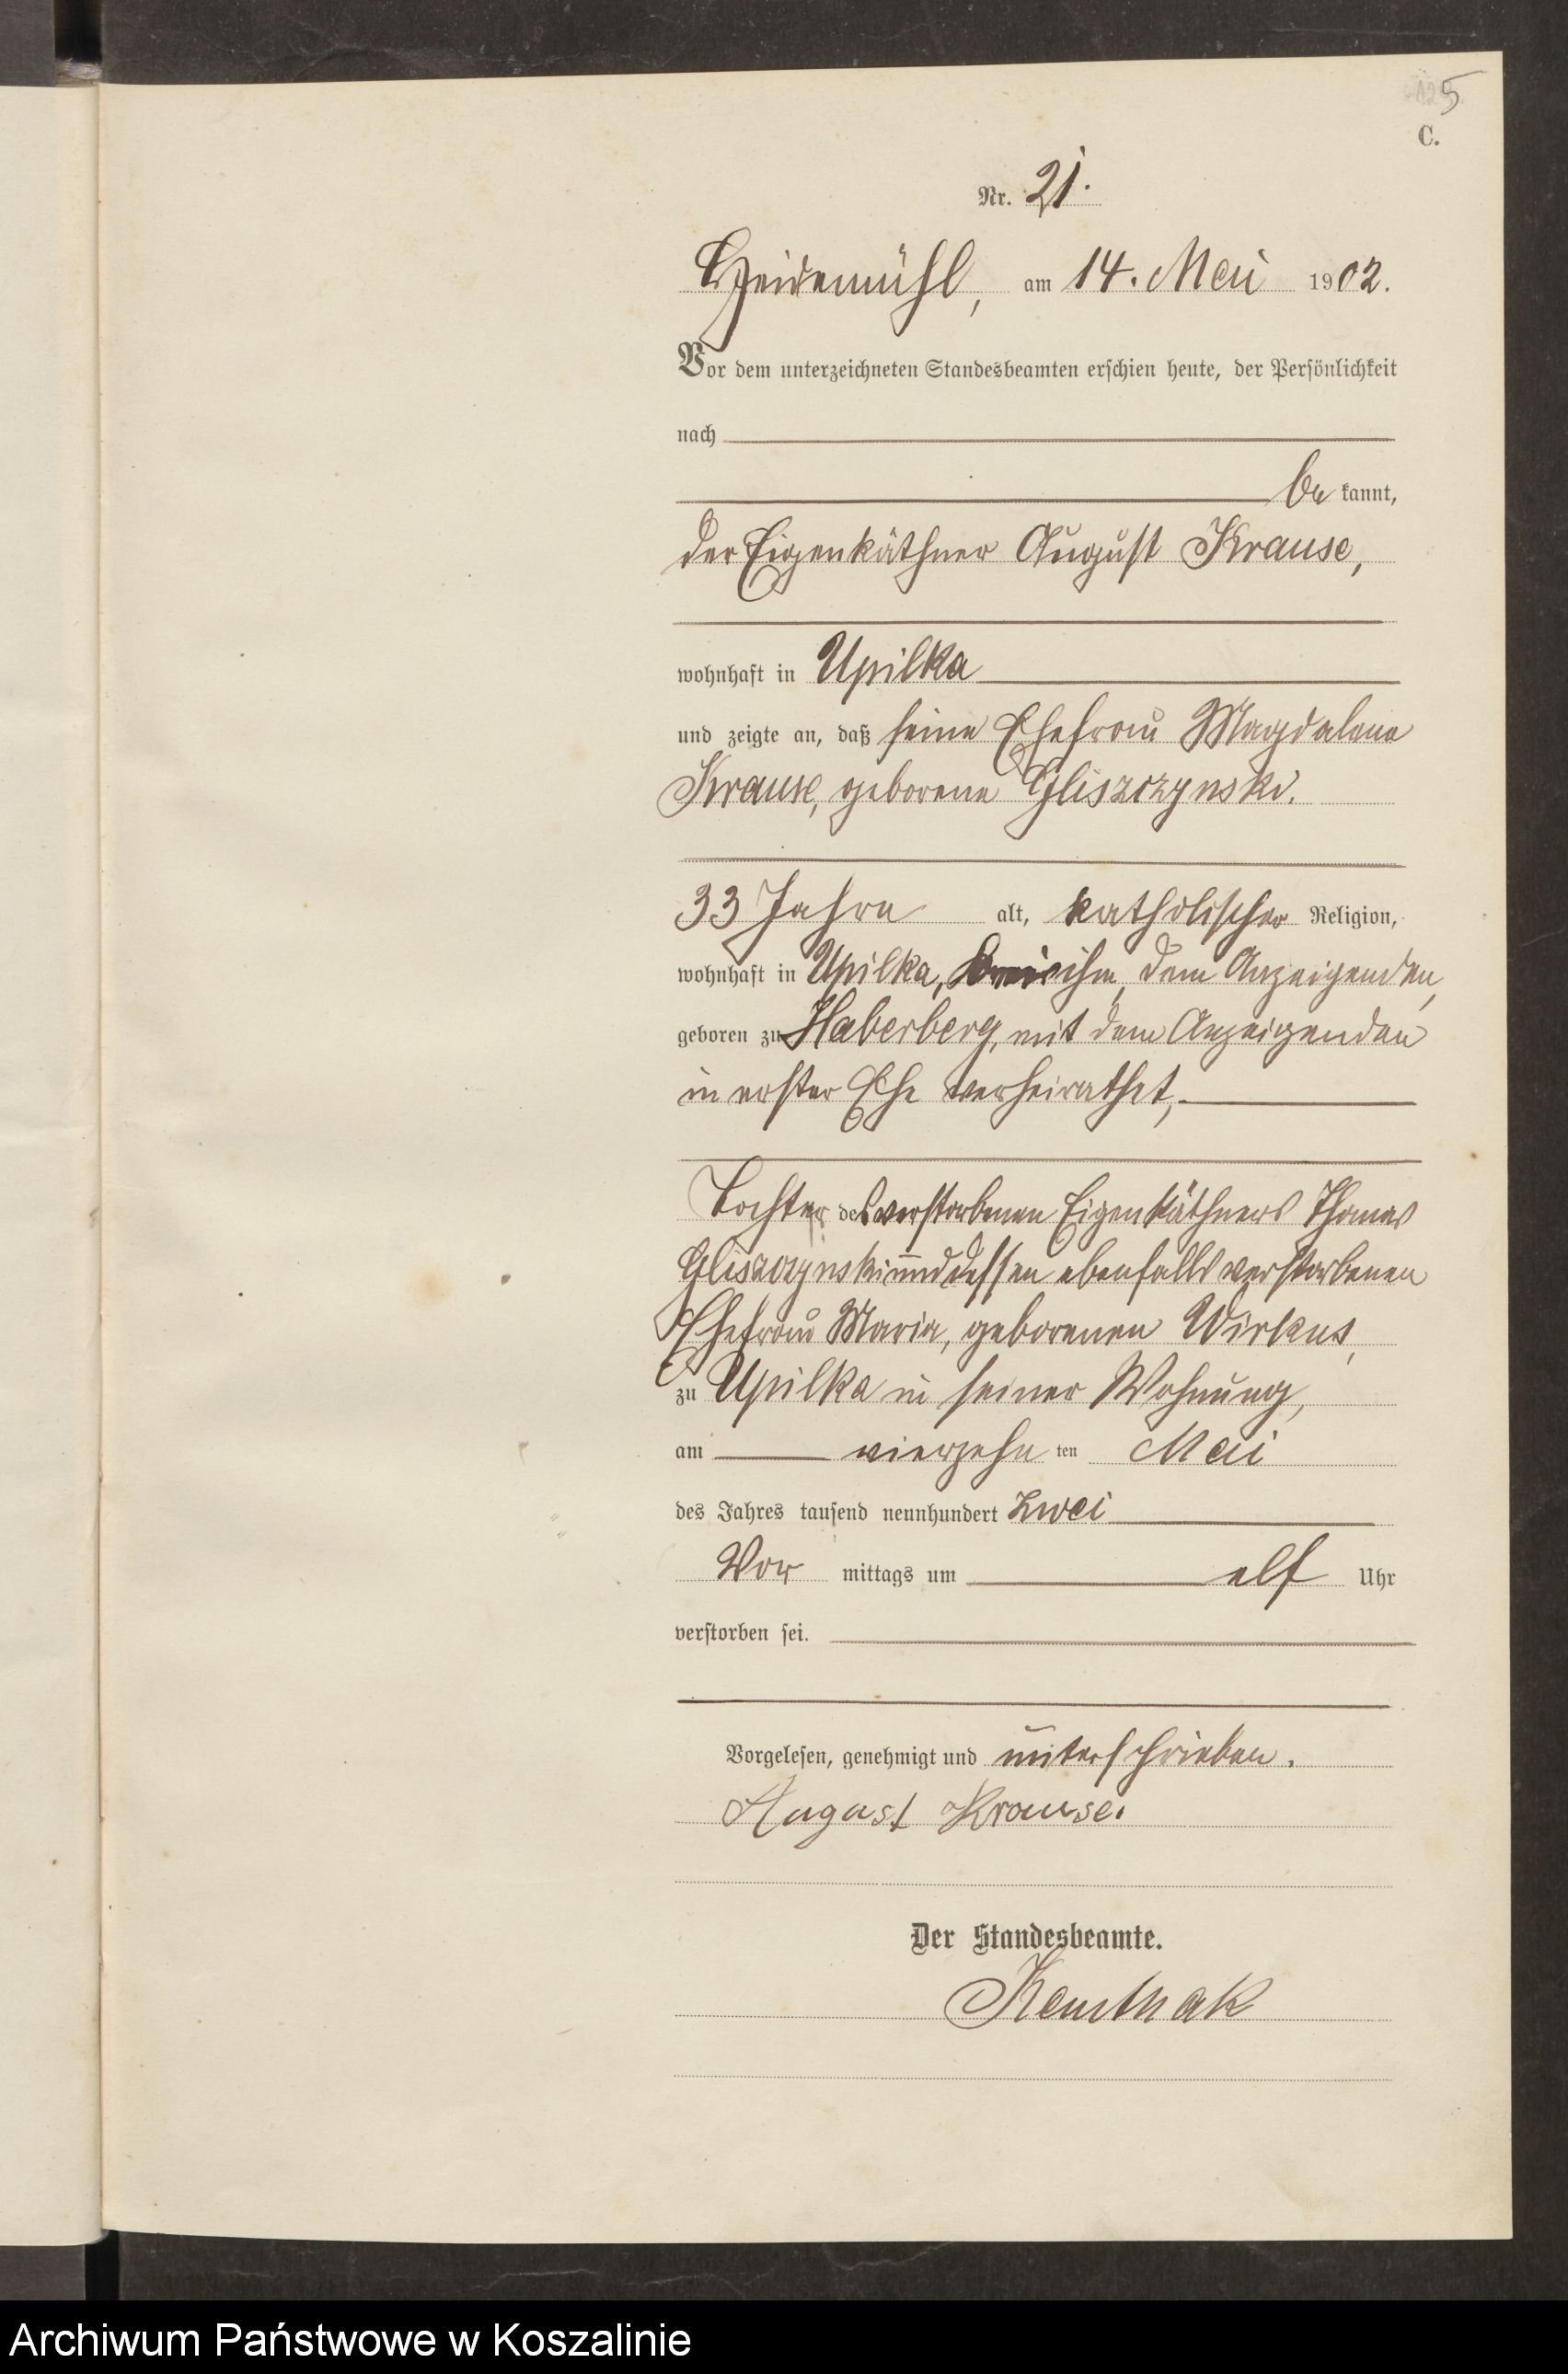 5
C.
Nr. 21.
Heidemühl, am 14. Mai 1902.
Vor dem unterzeichneten Standesbeamten erschien heute, der Persönlichkeit
nach
be kannt,
der Eigenkäthner August Krause,
wohnhaft in Upilka
und zeigte an, daß seine Ehefrau Magdalena
Krause, geborene Gliszczynski.
33 Jahre alt, katholischer Religion,
wohnhaft in Upilka, bei ihm, dem Anzeigenden,
geboren zu Haberberg, mit dem Anzeigenden
in erster Ehe verheirathet,
Tochter des verstorbenen Eigenkäthners Thomas
Gliszczynski und dessen ebenfalls verstorbenen
Ehefrau Maria, geborenen Wirkus,
zu Upilka in seiner Wohnung,
am vierzehn ten Mai
des Jahres tausend neunhundert zwei
Vor mittags um elf Uhr
verstorben sei.
Vorgelesen, genehmigt und unterschrieben.
August Krause.
Der Standesbeamte.
Archiwum Państwowe w Koszalinie